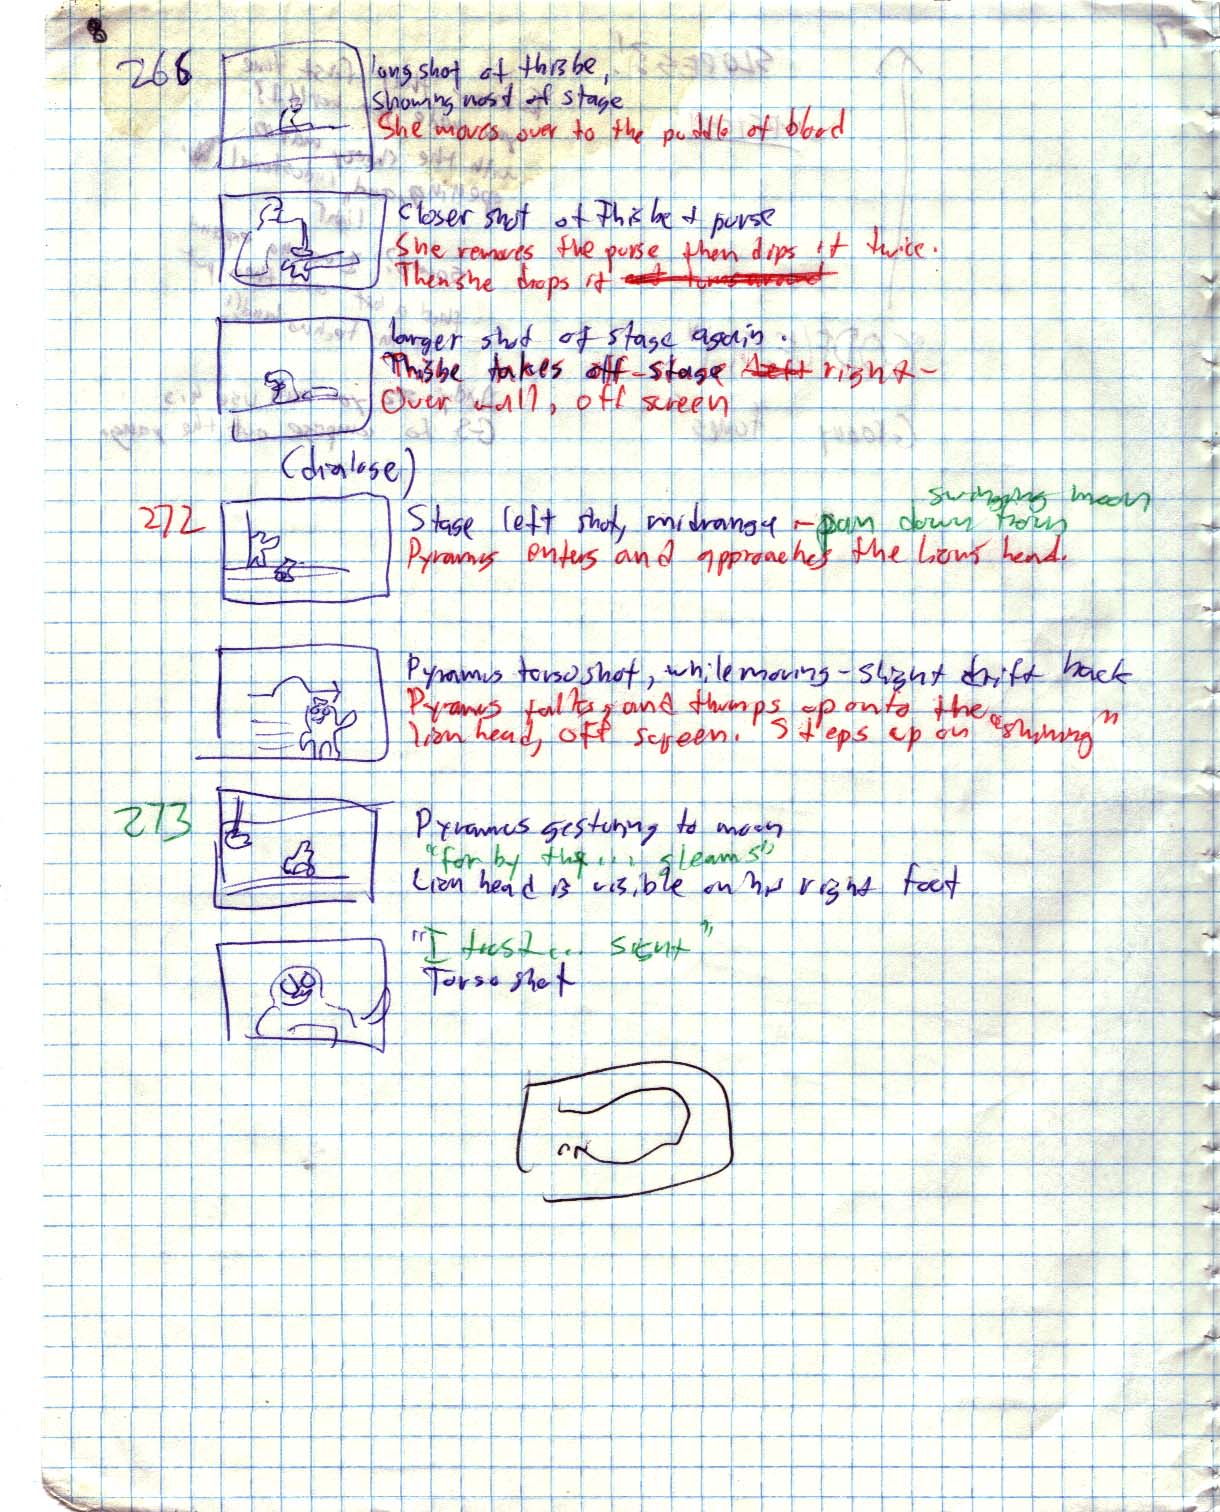 8
266 long shot of thisbe,
showing most of stage
She moves over to the puddle of blood
Closer shot of Thisbe + purse
She removes the purse then dips it twice.
Then she drops it and turns around
larger shot of stage again.
Thisbe takes off-stage left right -
Over wall, off screen
(dialoge)
swinging moon
272 Stage left shot, midrange - pan down from
Pyramus enters and approaches the Lions head.
Pyramus torso shot, while moving - slight drift back
Pyramus talks, and thumps up onto the
lion head, off screen. Steps up on "shining"
273 Pyramus gesturing to moon
"for by thy... gleams"
Lion head is visible on his right foot
"I trust... sight"
Torso shot